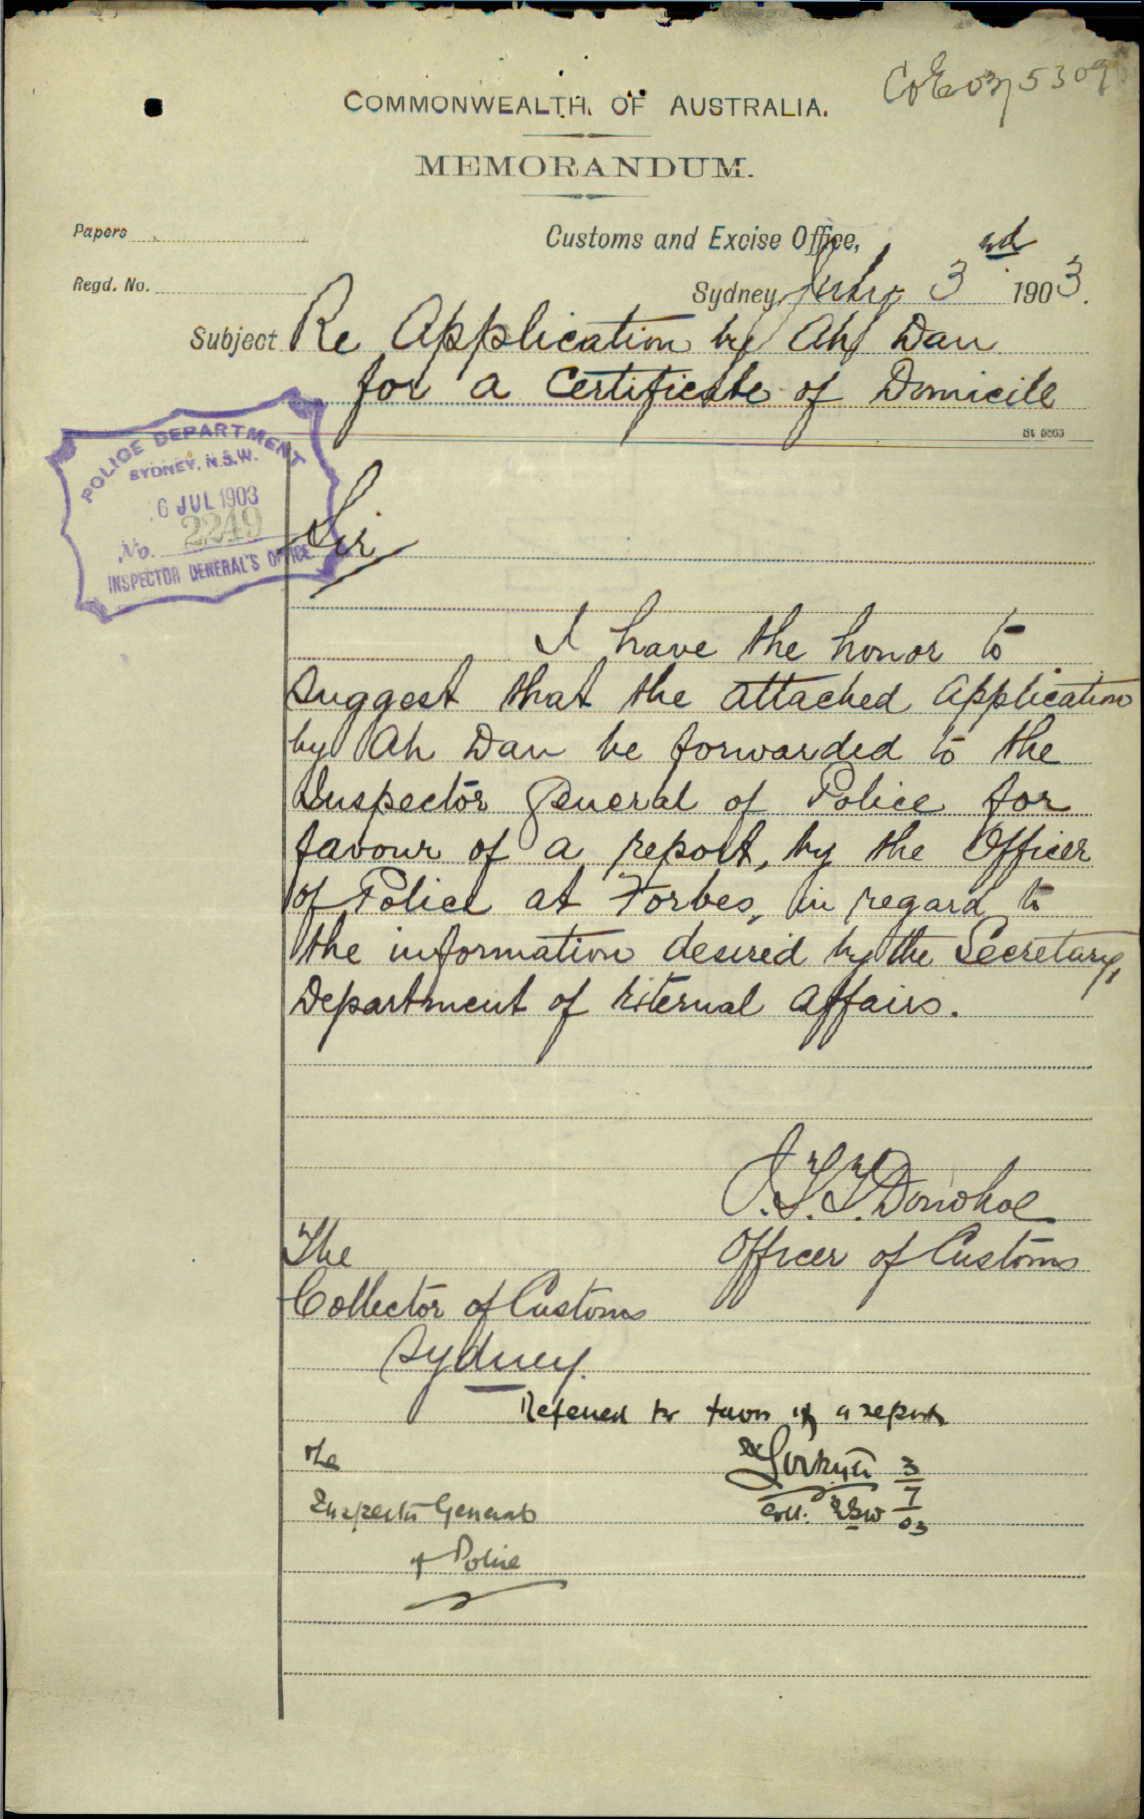 COMMONWEALTH OF AUSTRALIA.
MEMORANDUM.
Papers
Customs and Excise Office,
Regd. No.
Sydney, July 3rd 1903.
Subject Re Application by Ah Dan
for a Certificate of Domicile
POLICE DEPARTMENT
SYDNEY, N.S.W.
6 JUL 1903
No. 2249
INSPECTOR GENERAL'S OFFICE
Sir
I have the honor to
suggest that the attached application
by Ah Dan be forwarded to the
Inspector General of Police for
favour of a report, by the Officer
of Police at Forbes, in regard to
the information desired by the Secretary,
Department of External Affairs.
J.T.T. Donohoe
Officer of Customs
The
Collector of Customs
Sydney.
Referred for favor of a report
The
Inspector General
of Police
Coll. NSW
3/7/03